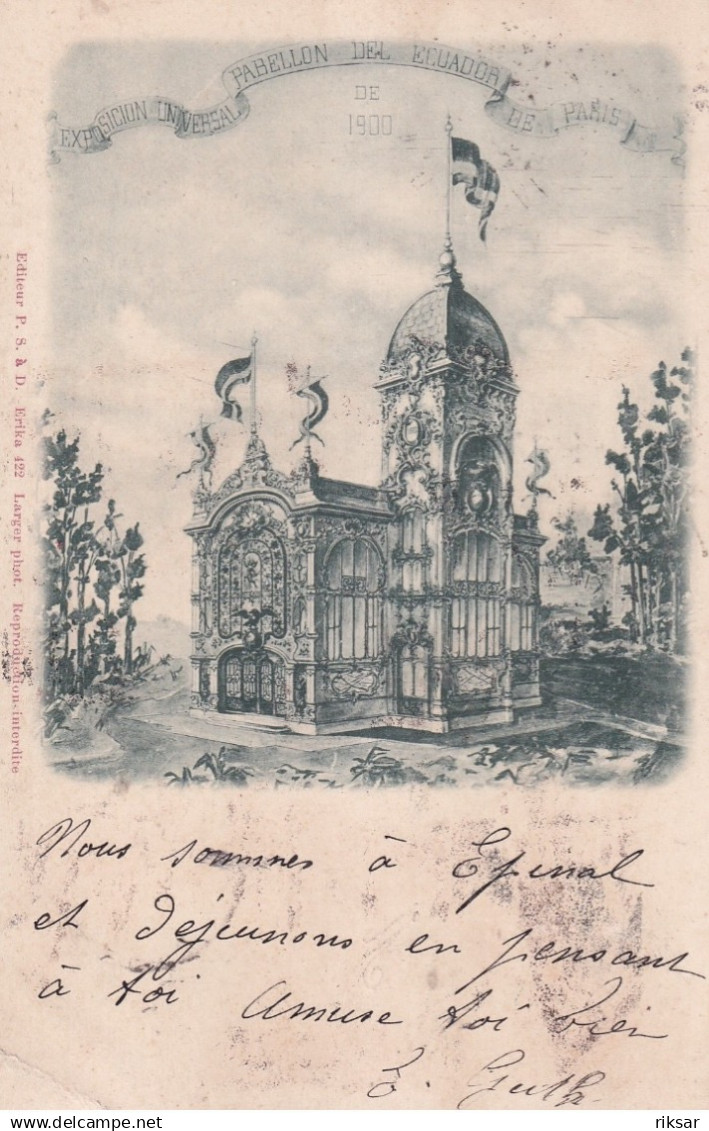 PABELLON DEL ECUADOR
EXPOSICION UNIVERSAL DE DE PARIS
1900
Editeur P. S. à D. Erika 422 Larger phot. Reproduction interdite
Nous sommes à Epinal
et déjeunons en pensant
à toi Amuse toi bien
E.
riksar
delcampe.net